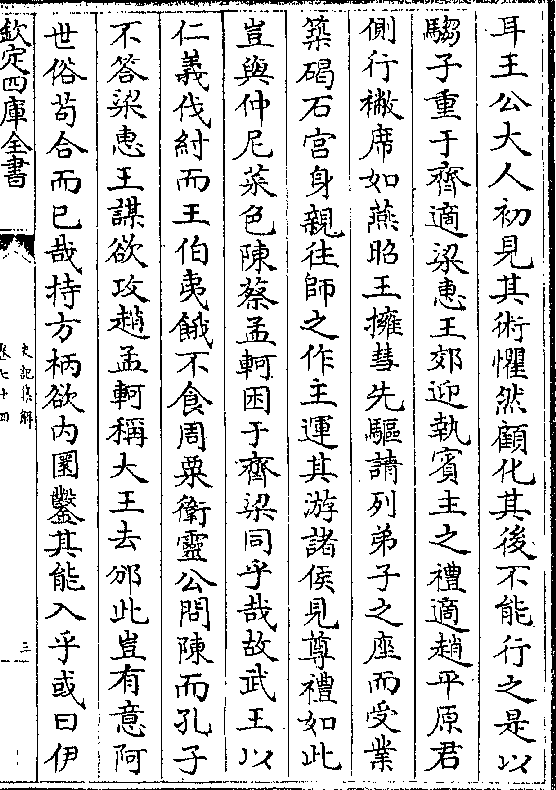 耳王公大人初見其術懼然顧化其後不能行之是以
騶子重于齊適梁惠王郊迎執賓主之禮適趙平原君
側行襒席如燕昭王擁彗先驅請列弟子之座而受業
築碣石宫身親往師之作主運其游諸侯見尊禮如此
豈與仲尼菜色陳蔡孟軻困于齊梁同乎哉故武王以
仁義伐紂而王伯夷餓不食周粟衛靈公問陳而孔子
不答梁惠王謀欲攻趙孟軻稱大王去邠此豈有意阿
世俗苟合而已哉持方枘欲内圜鑿其能入乎或曰伊
欽定四庫全書
史記集解
卷七十四
三